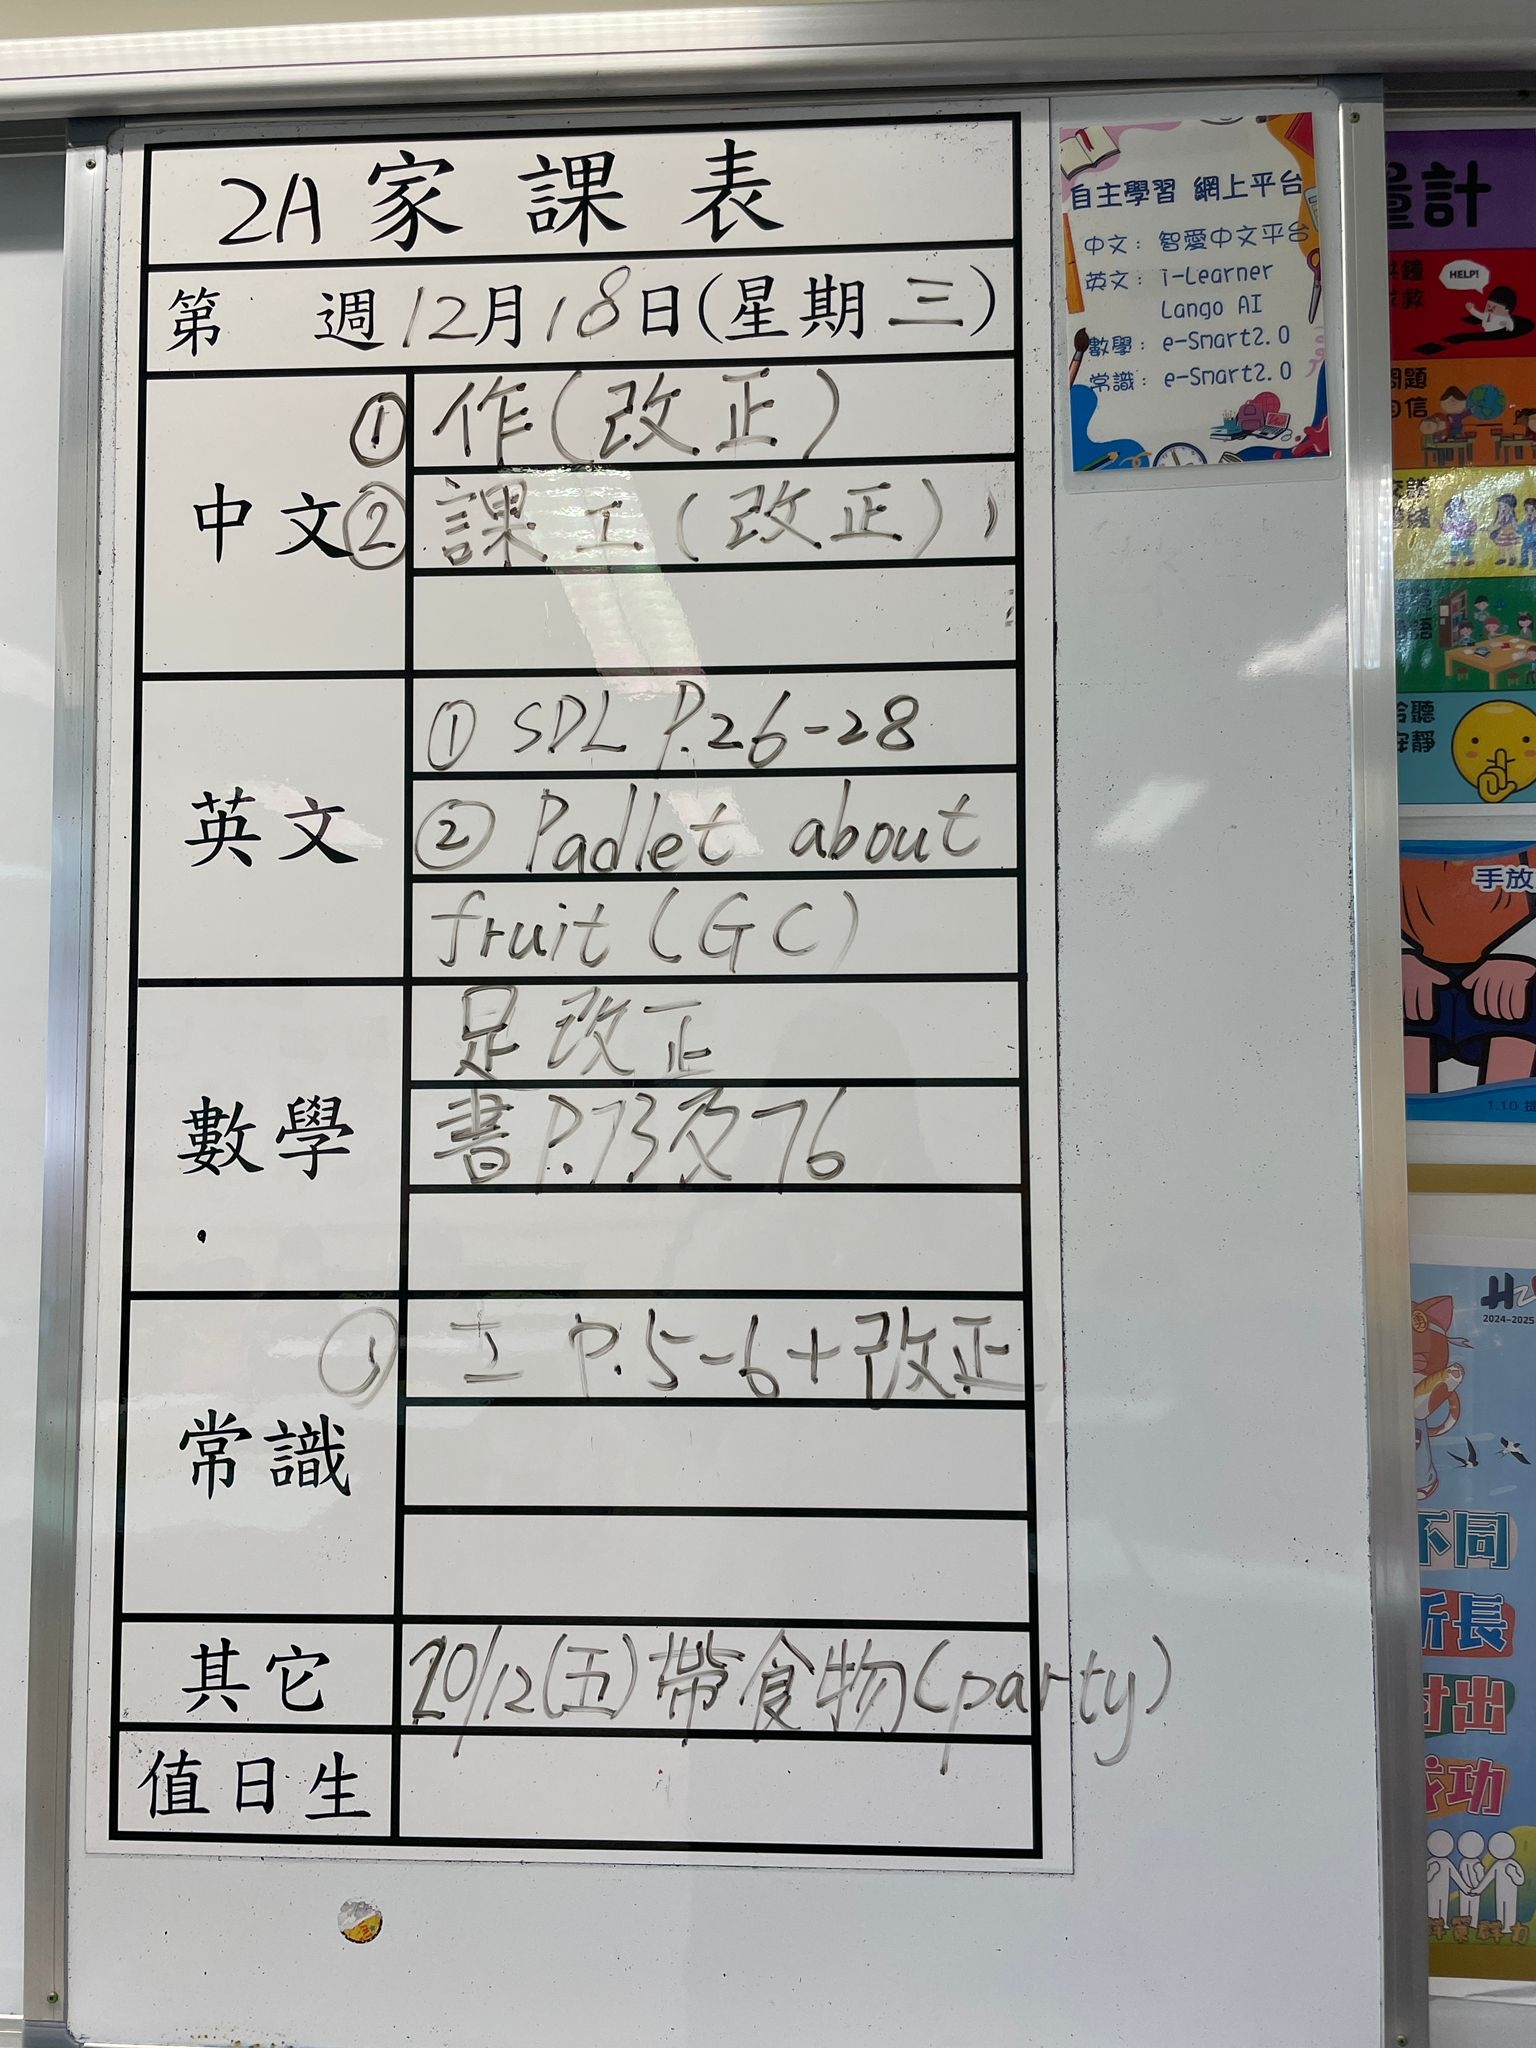 2A 家課表
第 週 12月18日(星期三)
中文
① 作(改正)
② 課工(改正)
英文
① SDL P.26-28
② Padlet about
fruit (GC)
數學
足改正
書P.73及76
常識
工 P.5-6+改正
其它
20/12(五)帶食物(party)
值日生
自主學習 網上平台
中文: 智愛中文平台
英文: i-Learner
Lango AI
數學: e-Smart2.0
常識: e-Smart2.0
量計
HELP!
求救
問題
自信
安靜
手放
1.10
2024-2025
不同
所長
付出
成功
群策群力